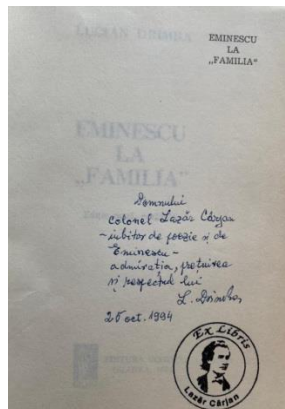 EMINESCU
LA
„FAMILIA”
LUCIAN DRIMBA
EMINESCU
LA
„FAMILIA”
Domnului
colonel Lazăr Cârjan
-iubitor de poezie și de
Eminescu-
admirația, prețuirea
și respectul lui
L. Drimba,
25 oct. 1994
Ex Libris
Lazăr Cârjan